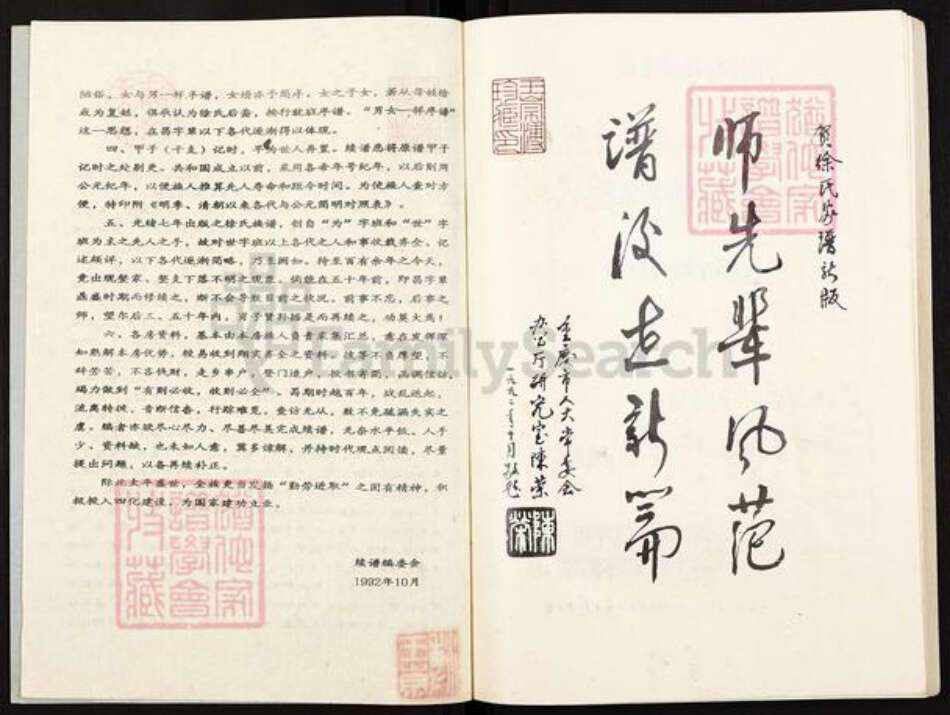 陋俗，女与男一样序谱，女婿亦予简序，女之子女，若从母姓徐
或为复姓，俱承认为徐氏后裔，按行就班序谱。“男女一样序谱”
这一思想，在昌字辈以下各代逐渐得以体现。
四、甲子（干支）记时，早为世人弃置。续谱悉将原谱甲子
记时之处剔更。共和国成立以前，采用各帝年号纪年，以后则用
公元纪年，以便族人推算先人寿命和距今时间。为使族人查对方
便，特印附《明季、清朝以来各代与公元简明对照表》。
五、光绪七年出版之徐氏族谱，创自“为”字班和“世”字
班为主之先人之手，故对世字班以上各代之人和事收载齐全，记
述颇详，以下各代逐渐简略，乃至阙如。待至百有余年之今天，
竟出现娶家、娶支下落不明之现象。倘能在五十年前，即昌字辈
鼎盛时期而修续之，断不会导致目前之状况。前事不忘，后事之
师，望尔后三、五十年内，有子贤孙踏是而再续之，功莫大焉！
六、各房资料，基本由本房族人负责家集汇总，意在发挥深
知熟解本房优势，较易收到翔实齐全之资料。彼等不负厚望，不
辞劳苦，不吝钱财，走乡串户，登门造户，投书寄简，函调信访，
竭力做到“有则必收，收则必全”。曷期时越百年，战乱迭起，
流离转换，音断信杳，行踪难觅，查访无从，致不免疏漏失实之
虞。编者亦欲尽心尽力、尽善尽美完成续谱，无奈水平低、人手
少、资料缺，也未如人意，冀多谅解，并持时代观点阅读，尽量
提出问题，以备再续补正。
际此太平盛世，全族更当发扬“勤劳进取”之固有精神，积
极投入四化建设，为国家建功立业。
续谱编委会
1992年10月
贺徐氏家谱新版
师先辈风范
谱后世新篇
重庆市人大常委会
办公厅研究室陈荣
一九九二年十月敬题
陈荣
FamilySearch